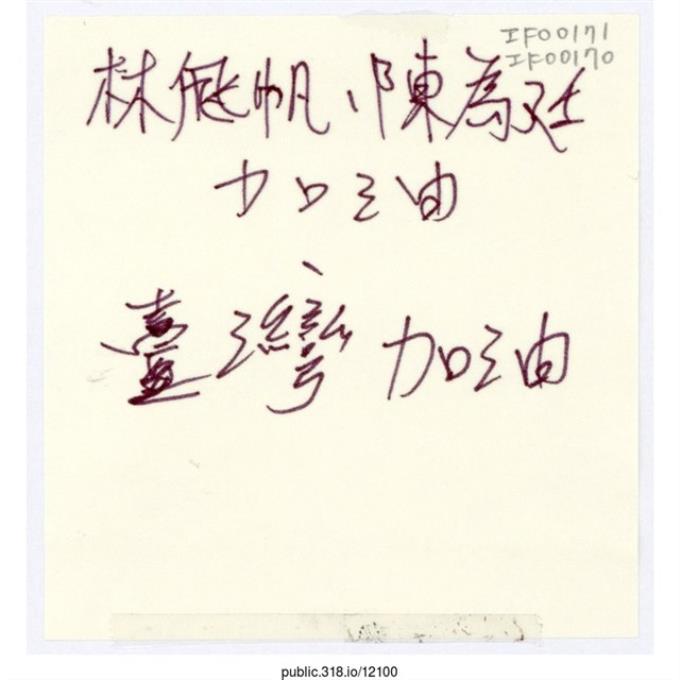 IF00171
IF00170
林飛帆、陳為廷
加油
臺灣加油
public.318.io/12100